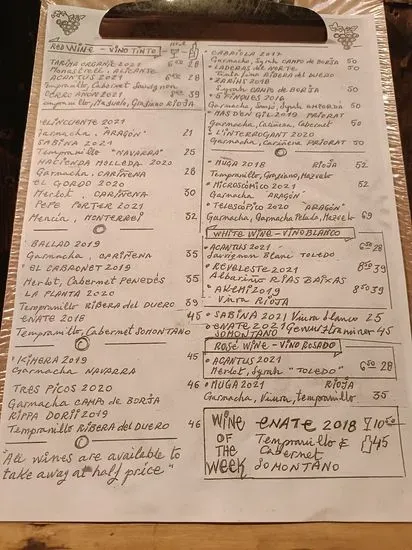 RED WINE - VINO TINTO
TARIMA ORGANIC 2021 6 28
Monastrell, ALICANTE
ACANTUS 2021 6 28
Tempranillo, Cabernet Sauvignon
2021
Tempranillo, Mazuelo, Graciano RIOJA
ELINCUENTE 2021
Garnacha, ARAGÓN 21
SABINA 2021
Tempranillo "NAVARRA" 25
HACIENDA MOLLEDA 2020
Garnacha, CARIÑENA 28
EL GORDO 2020
Merlot, CARIÑENA 30
PEPE PORTER 2021
Mencía, MONTERREI 32
BALLAD 2019
Garnacha, CARIÑENA 35
EL CABRONET 2019
Merlot, Cabernet PENEDÉS 35
LA PLANTA 2020
Tempranillo RIBERA del DUERO 39
ENATE 2018 45
Tempranillo, Cabernet SOMONTANO
KIMERA 2019 45
Garnacha NAVARRA
TRES PICOS 2020
Garnacha CAMPO de BORJA 46
RIPPA DORII 2019
Tempranillo RIBERA del DUERO 46
"All wines are available to
take away at half price"
CABRIOLA 2017
Garnacha, Syrah CAMPO de BORJA 50
LADERAS del NORTE 50
Tinta fina RIBERA del DUERO
ZARIHS 2018
Syrah CAMPO de BORJA 50
5 FINQUES 2018
Garnacha, Samsó, Syrah AMPORDÁ 50
MAS D'EN GIL 2019 PRIORAT
Garnacha, Cariñena, Cabernet 50
L'INTERROGANT 2020
Garnacha, Cariñena PRIORAT 50
MUGA 2018 RIOJA 52
Tempranillo, Graciano, Mazuelo
MICROSCÓPICO 2021 52
Garnacha ARAGÓN
TELESCÓPICO 2020 "ARAGÓN"
Garnacha, Garnacha Peluda, Mazuelo 69
WHITE WINE - VINO BLANCO
ACANTUS 2021 6 50 28
Sauvignon Blanc TOLEDO
REVELESTE 2021 8 50 39
Albariño RIAS BAIXAS
AKEMI 2019 8 50 39
Viura RIOJA
SABINA 2021 Viura blanco 25
ENATE 2021 Gewurztraminer 45
SOMONTANO
ROSÉ WINE - VINO ROSADO
ACANTUS 2021 6 50 28
Merlot, Syrah "TOLEDO"
MUGA 2021 RIOJA
Garnacha, Viura, tempranillo 35
WINE OF THE WEEK
ENATE 2018 10 50
Tempranillo & 45
Cabernet
SOMONTANO